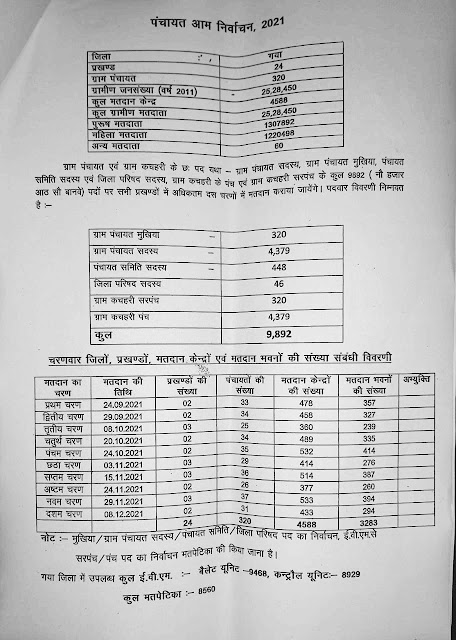 पंचायत आम निर्वाचन, 2021
जिला : गया
प्रखण्ड 24
ग्राम पंचायत 320
ग्रामीण जनसंख्या (वर्ष 2011) 25,28,450
कुल मतदान केन्द्र 4588
कुल ग्रामीण मतदाता 25,28,450
पुरूष मतदाता 1307892
महिला मतदाता 1220498
अन्य मतदाता 60
ग्राम पंचायत एवं ग्राम कचहरी के छः पद यथा – ग्राम पंचायत सदस्य, ग्राम पंचायत मुखिया, पंचायत
समिति सदस्य एवं जिला परिषद सदस्य, ग्राम कचहरी के पंच एवं ग्राम कचहरी सरपंच के कुल 9892 ( नौ हजार
आठ सौ बानवे) पदों पर सभी प्रखण्डों में अधिकतम दस चरणों में मतदान कराया जायेंगे। पदवार विवरणी निम्नवत
है :–
ग्राम पंचायत मुखिया – 320
ग्राम पंचायत सदस्य – 4,379
पंचायत समिति सदस्य – 448
जिला परिषद सदस्य 46
ग्राम कचहरी सरपंच 320
ग्राम कचहरी पंच 4,379
कुल 9,892
चरणवार जिलों, प्रखण्डों, मतदान केन्द्रों एवं मतदान भवनों की संख्या संबंधी विवरणी
मतदान का मतदान की प्रखण्डों की पंचायतों की मतदान केन्द्रों मतदान भवनों अभ्युक्ति
चरण तिथि संख्या संख्या की संख्या की संख्या
प्रथम चरण 24.09.2021 02 33 478 357
द्वितीय चरण 29.09.2021 02 34 458 327
तृतीय चरण 08.10.2021 03 25 360 239
चतुर्थ चरण 20.10.2021 02 34 489 335
पंचम चरण 24.10.2021 02 35 532 414
छठा चरण 03.11.2021 03 29 414 276
सप्तम चरण 15.11.2021 03 36 514 387
अष्टम चरण 24.11.2021 02 26 377 260
नवम चरण 29.11.2021 03 37 533 394
दशम चरण 08.12.2021 02 31 433 294
24 320 4588 3283
नोट :– मुखिया/ग्राम पंचायत सदस्य/पंचायत समिति/जिला परिषद पद का निर्वाचन, ई.वी.एम.से
सरपंच/पंच पद का निर्वाचन मतपेटिका की किया जाना है।
गया जिला में उपलब्ध कुल ई.वी.एम. :– बैलेट यूनिट –9468, कन्ट्रौल यूनिटः– 8929
कुल मतपेटिका :– 8560